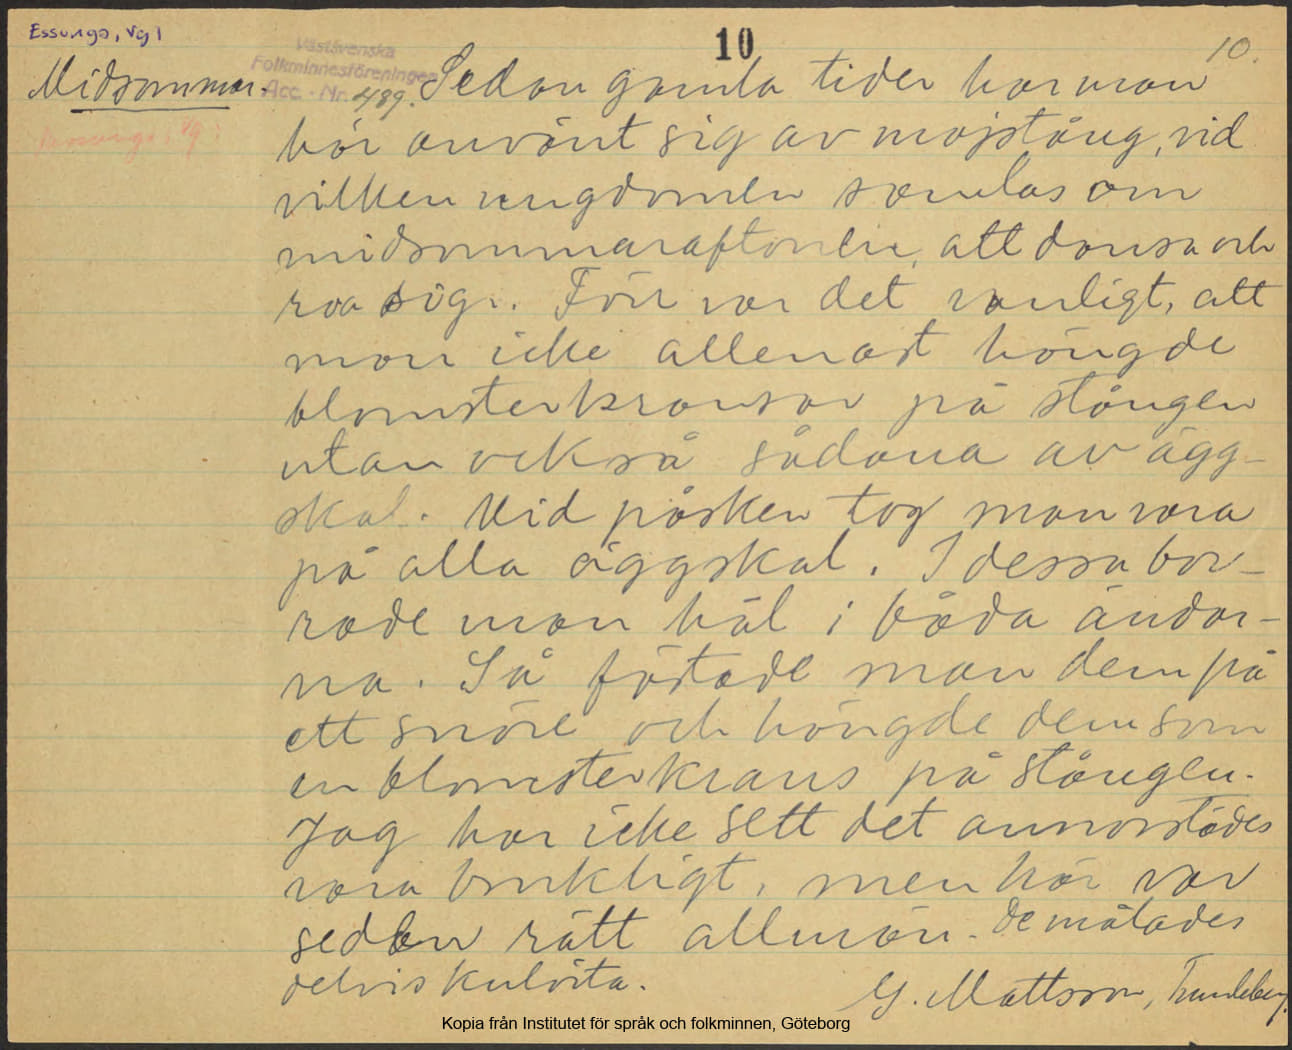 Essunga, Vg 1
10
10.
Västsvenska
Folkminnesföreningen
Acc. - Nr. 489.
Midsommar.
Essunga, Vg
Sedan gamla tider har man
här använt sig av majstång, vid
vilken ungdomen samlas om
midsommaraftonen, att dansa och
roa sig. Förr var det vanligt, att
man icke allenast hängde
blomsterkransar på stången
utan också sådana av ägg-
skal. Vid påsken tog man vara
på alla äggskal. I dessa bor-
rade man hål i båda ändar-
na. Så fästade man dem på
ett snöre och hängde dem som
en blomsterkrans på stången.
Jag har icke sett det annorstädes
vara brukligt, men här var
seden rätt allmän. De målades
delvis kulörta.
G. Mattsson,
Kopia från Institutet för språk och folkminnen, Göteborg